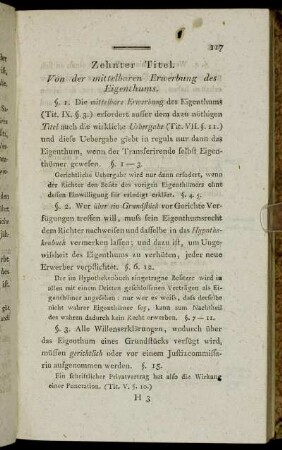 117
Zehnter Titel.
Von der mittelbaren Erwerbung des
Eigenthums.
§. 1. Die mittelbare Erwerbung des Eigenthums
(Tit. IX. §. 3.) erfordert ausser dem dazu nöthigen
Titel auch die wirkliche Uebergabe (Tit. VII. §. 11.)
und diese Uebergabe giebt in regula nur dann das
Eigenthum, wenn der Transferirende selbst Eigen-
thümer gewesen. §. 1 — 3.
Gerichtliche Uebergabe wird nur dann erfodert, wenn
der Richter den Besitz des vorigen Eigenthümers ohne
dessen Einwilligung für erledigt erklärt. §. 4. 5.
§. 2. Wer über ein Grundstück vor Gericht Ver-
fügungen treffen will, muss sein Eigenthumsrecht
dem Richter nachweisen und dasselbe in das Hypothe-
kenbuch vermerken lassen; und dazu ist, um Unge-
wissheit des Eigenthums zu verhüten, jeder neue
Erwerber verpflichtet. §. 6. 12.
Der im Hypothekenbuch eingetragne Besitzer wird in
allen mit einem Dritten geschlossenen Verträgen als Ei-
genthümer angesehen: nur wer es weiss, dass derselbe
nicht wahrer Eigenthümer sey, kann zum Nachtheil
des wahren dadurch kein Recht erwerben. §. 7 — 11.
§. 3. Alle Willenserklärungen, wodurch über
das Eigenthum eines Grundstücks verfügt wird,
müssen gerichtlich oder vor einem Justizcommissa-
rio aufgenommen werden. §. 15.
Ein schriftlicher Privatvertrag hat also die Wirkung
einer Punctation. (Tit. V. §. 10.)
H 3